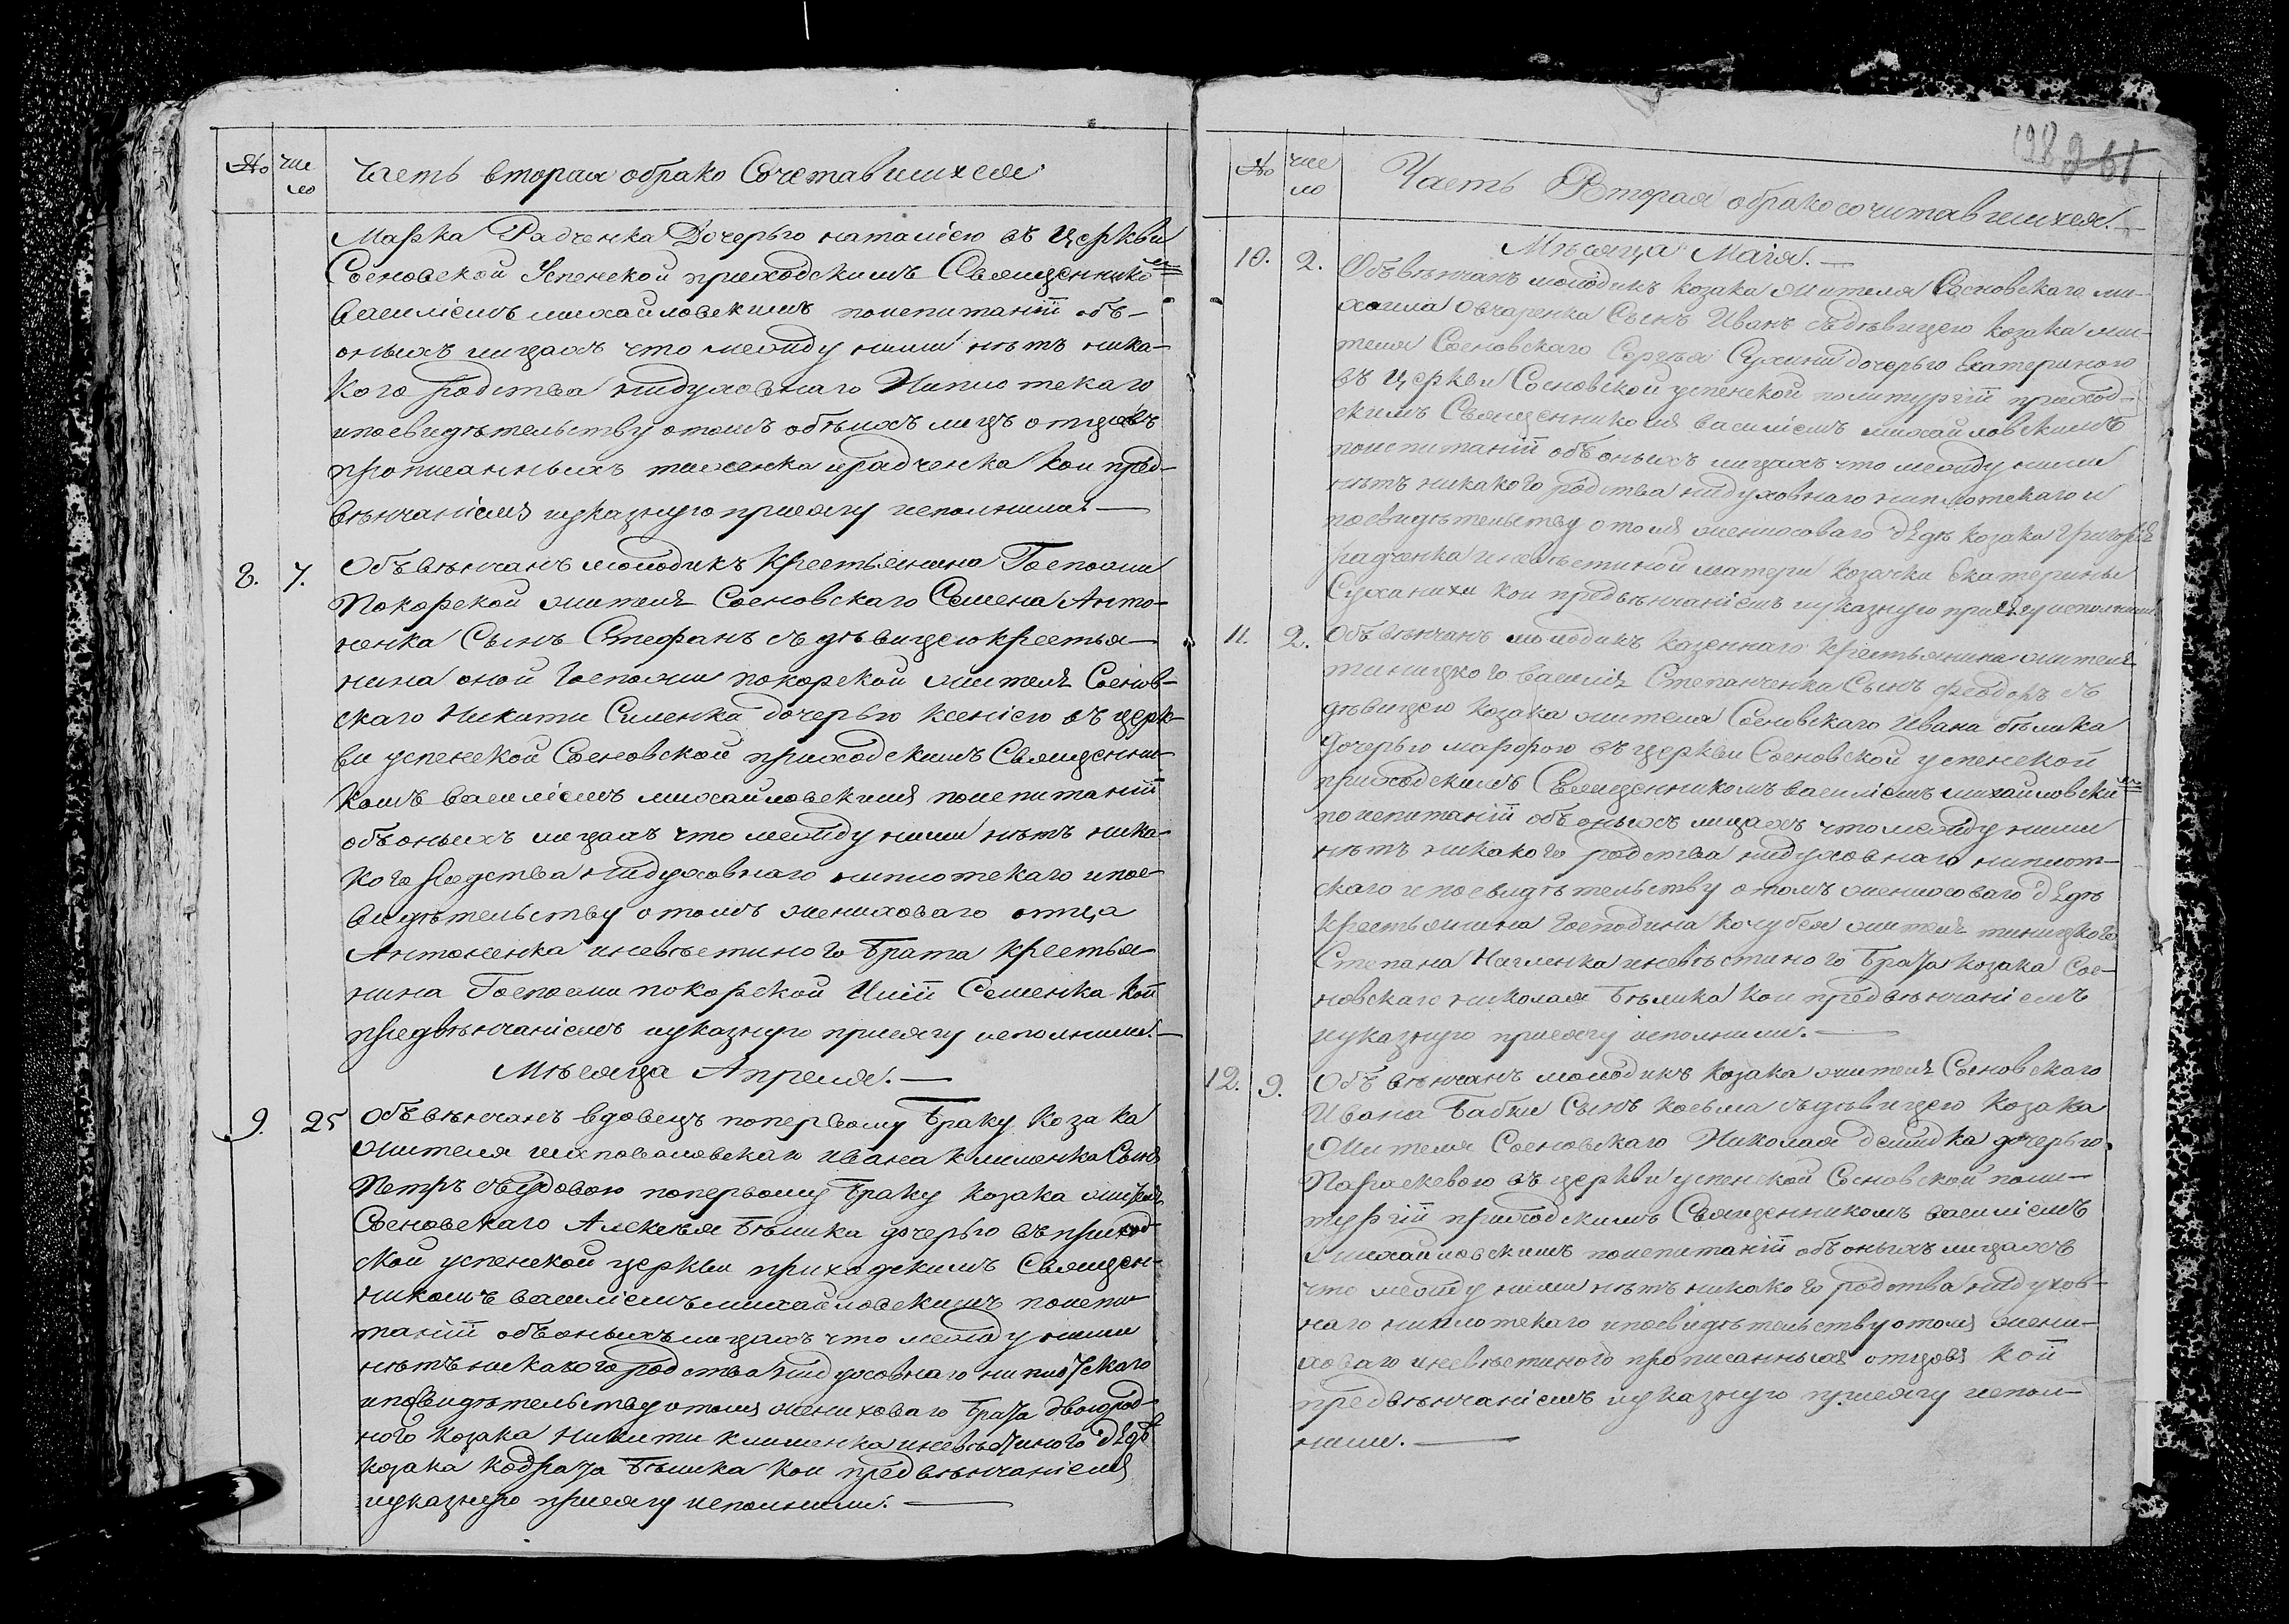 № чис
ло
Часть вторая обрако Сочетавшихся
Марка Радченка Дочерью наталіею въ Церкви
Сосновской Успенской приходскимъ Священнико
мъ
василіемъ михайловскимъ поиспитаніи объ-
оныхъ лицахъ что между ними нѣтъ ника-
кого родства нидуховнаго Ниплотскаго
ипосвидѣтельству отомъ обѣихъ лицъ отцовъ
прописанныхъ радченка кои пред-
вѣнчаніемъ иуказную присягу исполнили. —
8. 7. Объвѣнчанъ молодикъ Крестьянина Госпожи
Покорской жителя Сосновскаго Семена Анто-
ненка Сынъ Стефанъ съ дѣвицею крестья-
нина оной Госпожи покорской жителя Соснов-
скаго Никити Сименка дочерью ксеніею въ церк-
ви успенской Сосновской приходскимъ Священни-
комъ василіемъ михайловскимъ поиспитаніи
объоныхъ лицахъ что между ними нѣтъ ника-
кого родства нидуховнаго ниплотскаго ипос-
видѣтельству отомъ жениховаго отца
Антоненка иневѣстиного брата крестья-
нина Госпожи покорской Иліи Семенка кои
предвѣнчаніемъ иуказную присягу исполнили. —
Мѣсяца Апреля. —
9. 25 Объвѣнчанъ вдовецъ поперьвому браку козака
жителя ивана клименка Сынъ
Петръ съвдовою поперьвому браку козака жителя
Сосновскаго Алексѣя бѣлика дочерью въ приход-
ской успенской церкви приходскимъ Священ-
никомъ василіемъ михайловскимъ поиспи-
таніи объоныхъ лицахъ что между ними
нѣтъ никакого родства нидуховнаго ниплотскаго
ипосвидѣтельству отомъ жениховаго брата двоюрод-
ного козака никити клименка иневѣстиного дядѣ
козака кодрата бѣлика кои предвѣнчаніемъ
иуказную присягу исполнили. —
198 261
№ чис
ло
Часть Вторая обракосочитавшихся. —
Мѣсяца Маія. —
10. 2. Объвѣнчанъ молодикъ козака жителя Сосновскаго ми-
хаила Овчаренка Сынъ Иванъ съдѣвицею козака жи-
теля Сосновскаго Сергѣя Сухини дочерью Екатериною
въ церкви Сосновской успенской политургіи приход-
скимъ Священникомъ василіемъ михайловскимъ
поиспитаніи объоныхъ лицахъ что между ними
нѣтъ никакого родства нидуховнаго ниплотскаго и
посвидѣтельству отомъ жениховаго дядѣ козака Григорія
радченка иневѣстиной матери козачки Екатерины
Суханихи кои предвѣнчаніемъ иуказную присягу исполнили
11. 2. Объвѣнчанъ молодикъ казеннаго крестьянина жителя
тиницкого василія Степанченка Сынъ феодоръ съ
дѣвицею козака жителя Сосновскаго Ивана бѣлика
дочерью марфою въ церкви Сосновской успенской
приходскимъ Священникомъ василіемъ михайловски
мъ
поиспитаніи объоныхъ лицахъ что между ними
нѣтъ никакого родства нидуховнаго ниплот-
скаго ипосвидѣтельству отомъ жениховаго дядѣ
крестьянина Господина кочубея жителя тиницкого
Степана иневѣстиного брата козака Сос-
новскаго николая бѣлика кои предвѣнчаніемъ
иуказную присягу исполнили. —
12. 9. Объвѣнчанъ молодикъ козака жителя Сосновскаго
Ивана бабки Сынъ косьма съдѣвицею козака
жителя Сосновскаго Николая демидка дочерью
Параскевою въ церкви успенской Сосновской поли-
тургіи приходскимъ Священникомъ василіемъ
михайловскимъ поиспитаніи объоныхъ лицахъ
что между ними нѣтъ никакого родства нидухов-
наго ниплотскаго ипосвидѣтельству отомъ жени-
ховаго иневѣстиного прописанныхъ отцовъ кои
предвѣнчаніемъ иуказную присягу испол-
нили. —